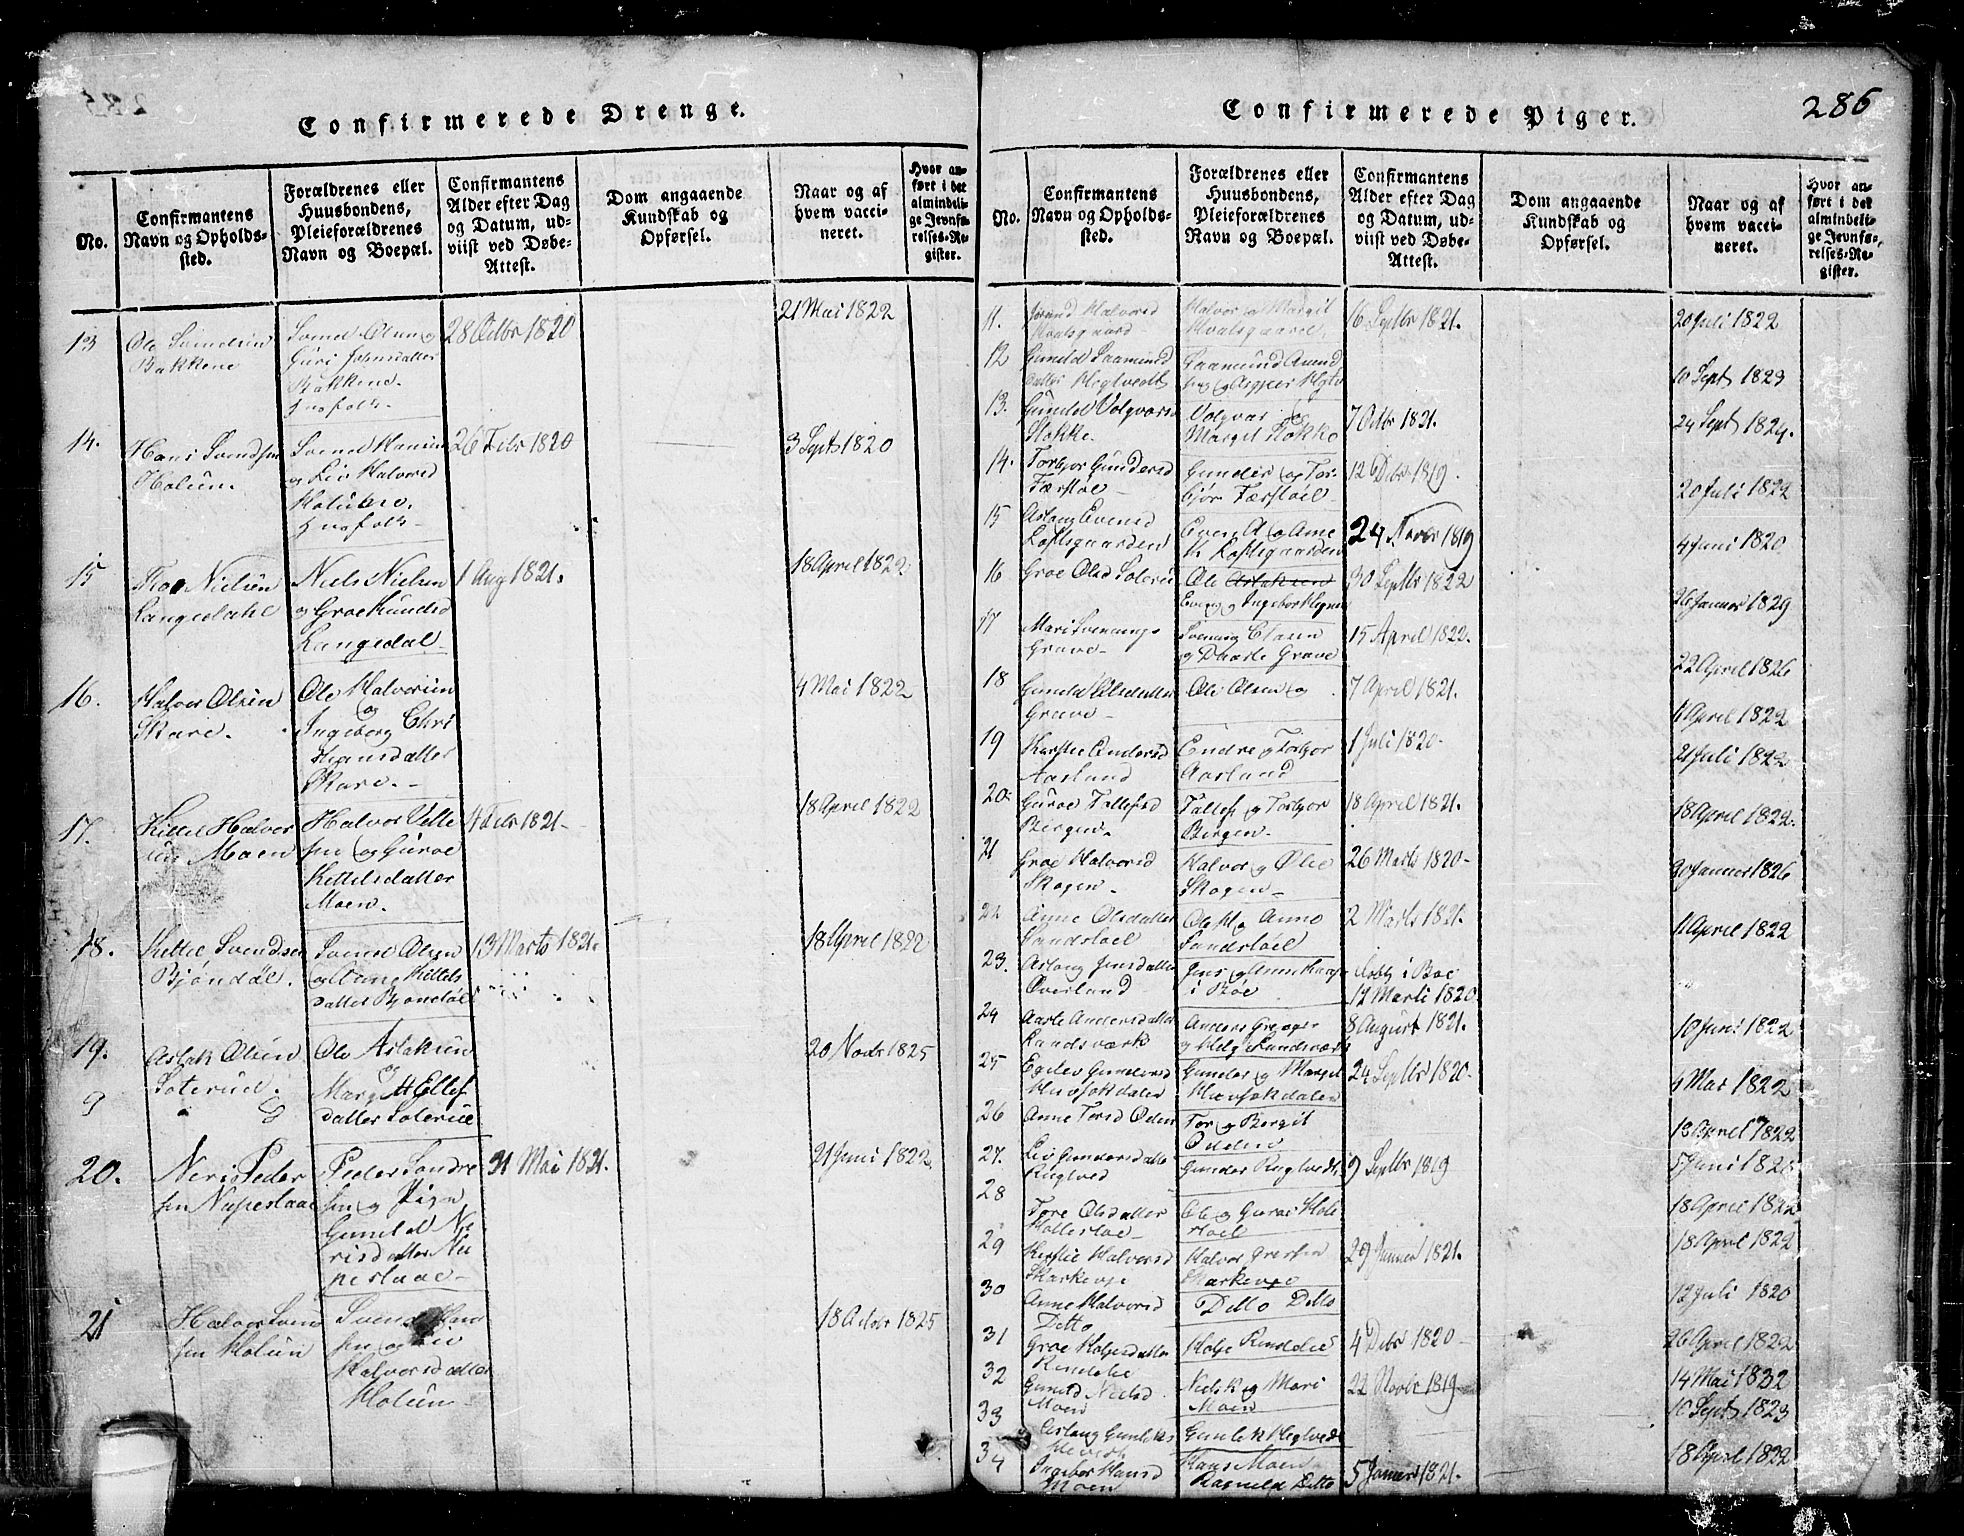 Confirmerede Drenge.
No.
Confirmantens
Navn og Opholds-
sted.
Forældrenes eller
Huusbondens,
Pleieforældrenes
Navn og Boepæl.
Confirmantens
Alder efter Dag
og Datum, ud-
viist ved Døbe-
Attest.
Dom angaaende
Kundskab og
Opførsel.
Naar og af
hvem vacci-
neret.
Hvor an-
ført i det
almindeli-
ge Jevnfø-
relses-Re-
gister.
13
Ole Svendsen
Bakkene
Svend Olsen og
Guri Johnsdatter
Bakkene.
Huusfolk.
28 Octbr 1820
21 Mai 1822
14.
Hans Svendsen
Holtun.
Svend Hansen
og Liv Halvorsd
Huusfolk
26 Febr 1820
3 Sept 1820
15
Thor Nielsen
Langedahl
Niels Nielsen
og Groe
Langedal
1 Aug 1821.
18 April 1822
16.
Halvor Olsen
Skare.
Ole Halvorsen
og
Ingeborg Chri
stensdatter
Skare.
4 Mai 1822
17.
Kittel Halvor
sen Moen
Halvor Kitte
sen og Guroe
Kettelsdatter
Moen.
4 Febr 1821
18 April 1822
18.
Kettel Svendsen
Bjøndøl.
Svend Olsen
Kittels
datter Bjøndøl
13 Marts 1821.
18 April 1822
19.
Aslak Olsen
Soterud.
Ole Aslaksen
og
Marget Ellef
datter Soterud
20 Novbr 1825
9
20.
Neri Peder
sen Nupeslaae
Peder Sondre
sen og Pige
Gunild Ne
risdatter Nu
peslaae
31 Mai 1821.
21 Juni 1822
21
Halvor Svend
sen Holtun
Svend Han
sen og Liv
Halvorsdatter
Holtun
18 Octbr 1825
Confirmerede Piger.
286
No.
Confirmantens
Navn og Opholds-
sted.
Forældrenes eller
Huusbondens,
Pleieforældrenes
Navn og Boepæl.
Confirmantens
Alder efter Dag
og Datum, ud-
viist ved Døbe-
Attest.
Dom angaaende
Kundskab og
Opførsel.
Naar og af
hvem vacci-
neret.
Hvor an-
ført i det
almindeli-
ge Jevnfø-
relses-Re-
gister.
11.
Halvorsd
Hvalsgaard
Halvor og Margit
Hvalsgaard
16 Septbr 1821.
20 Juli 1822
12
Gunild Saamund
datter Hegtvedt
Saamund Amund
sen og
10 Sept 1823
13.
Gunild Volgvarsd
Stokke.
Volgvar og
Margit Stokke
7 Octbr 1821.
24 Sept 1824.
14.
Torbjør Gundersd
Færstøe
Gunder og Tor
bjør Færstøel
12 Debr 1819.
20 Juli 1822
15
Aslaug Evensd
Loftsgaarden
Even A og Anne
Loftsgaarden
24 Novbr 1819
4 Juni 1820
16
Groe Olsd Soterud
Ole Aslaksen
30 Septbr 1822
26 Januar 1829
17
Mari Svenungs
Grave
Svenung Olsen
og Dorte Grave
15 April 1822
22 April 1826
18
Gunild Olsdatter
Grave
Ole Olsen og
7 April 1821.
11 April 1822
19
Kirstie Endresd
Aasland
Endre og Torbjor
Aasland
1 Juli 1820
21 Juli 1822
20.
Guroe Tallefsd
Bergen.
Tallef og Torbjor
Bergen
18 April 1821.
18 April 1822.
21
Groe Halvorsd
Skogen
Halvor og Olie
Skogen
26 Marts 1820
30 Januar 1826
22
Anne Olsdatter
Sandstøel
Ole H og Anne
Sandstøel
2 Marts 1821.
11 April 1822
23.
Aslaug Jensdatter
Øverland
i Bøe
i Boe
12 Marti 1820
24
Aaste Andersdatter
Sandsværk
Anders Greger
og Helge Sandsværk
8 August 1821.
10 Juni 1822
25
Egelev Gundersd
Gunder og Margit
24 Septbr 1820
6 Mai 1822
26
Anne Torsd Oden
Tor og Bergit
Odden
18 April 1822
27.
Liv Gundersdatter
Rugtved
Gunder Rugtvedt
9 Septbr 1819
5 Juni 1820
28
Tore Olsdatter
Holtestøe
Ole og Guroe Holte
støel
18 April 1822
29
Kirstie Halvorsd
Skarkeveje
Halvor
Skarkeveje
29 Januar 1821.
18 April 1822
30
Anne Halvorsd
Ditto
Ditto Ditto
12 Juli 1820
31
Groe Holjesdatter
Rindelie
Holje Rindelie
4 Debr 1820
26 April 1822
32
Gunild Nielsd
Moen
Niels K og Mari
Moen
22 Novbr 1819
14 Mai 1832
33
Aslaug Gunleks
Gunlek Hegtvedt
10 Sept 1823
34
Ingebor Hansd
Moen
Hans Moen
Ragnild Ditto
5 Januar 1821.
18 April 1822